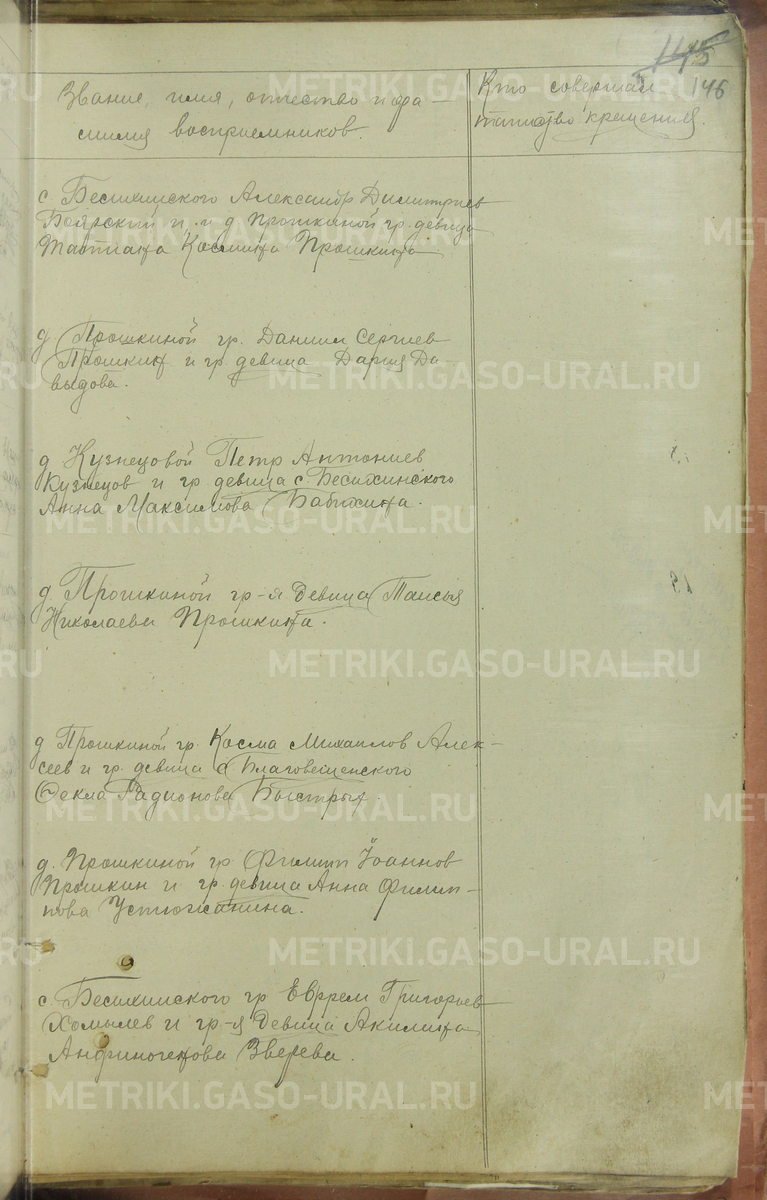 145
146
Звание, имя, отчество и фа-
милия восприемников.
Кто совершал
таинство крещения.
с. Бесихинского Александр Димитриев
Боярский и д. Прошкиной гр. девица
Татиана Космина Прошкина
д Прошкиной гр. Даниил Сергиев
Прошкин и гр девица Дария Да-
выдова.
д Кузнецовой Петр Антониев
Кузнецов и гр. девица с. Бесихинского
Анна Максимова Бабихина.
д. Прошкиной гр-я девица Таисья
Николаева Прошкина.
д Прошкиной гр. Косма Михаилов Алек-
сеев и гр. девица с Благовещенского
Фекла Радионова Быстрых.
д. Прошкиной гр. Филипп Іоаннов
Прошкин и гр. девица Анна Филип-
пова Устюжанина.
с. Бесихинского гр Ефрем Григорьев
Хомылев и гр-я девица Акилина
Андриногенова Зверева.
METRIKI.GASO-URAL.RU